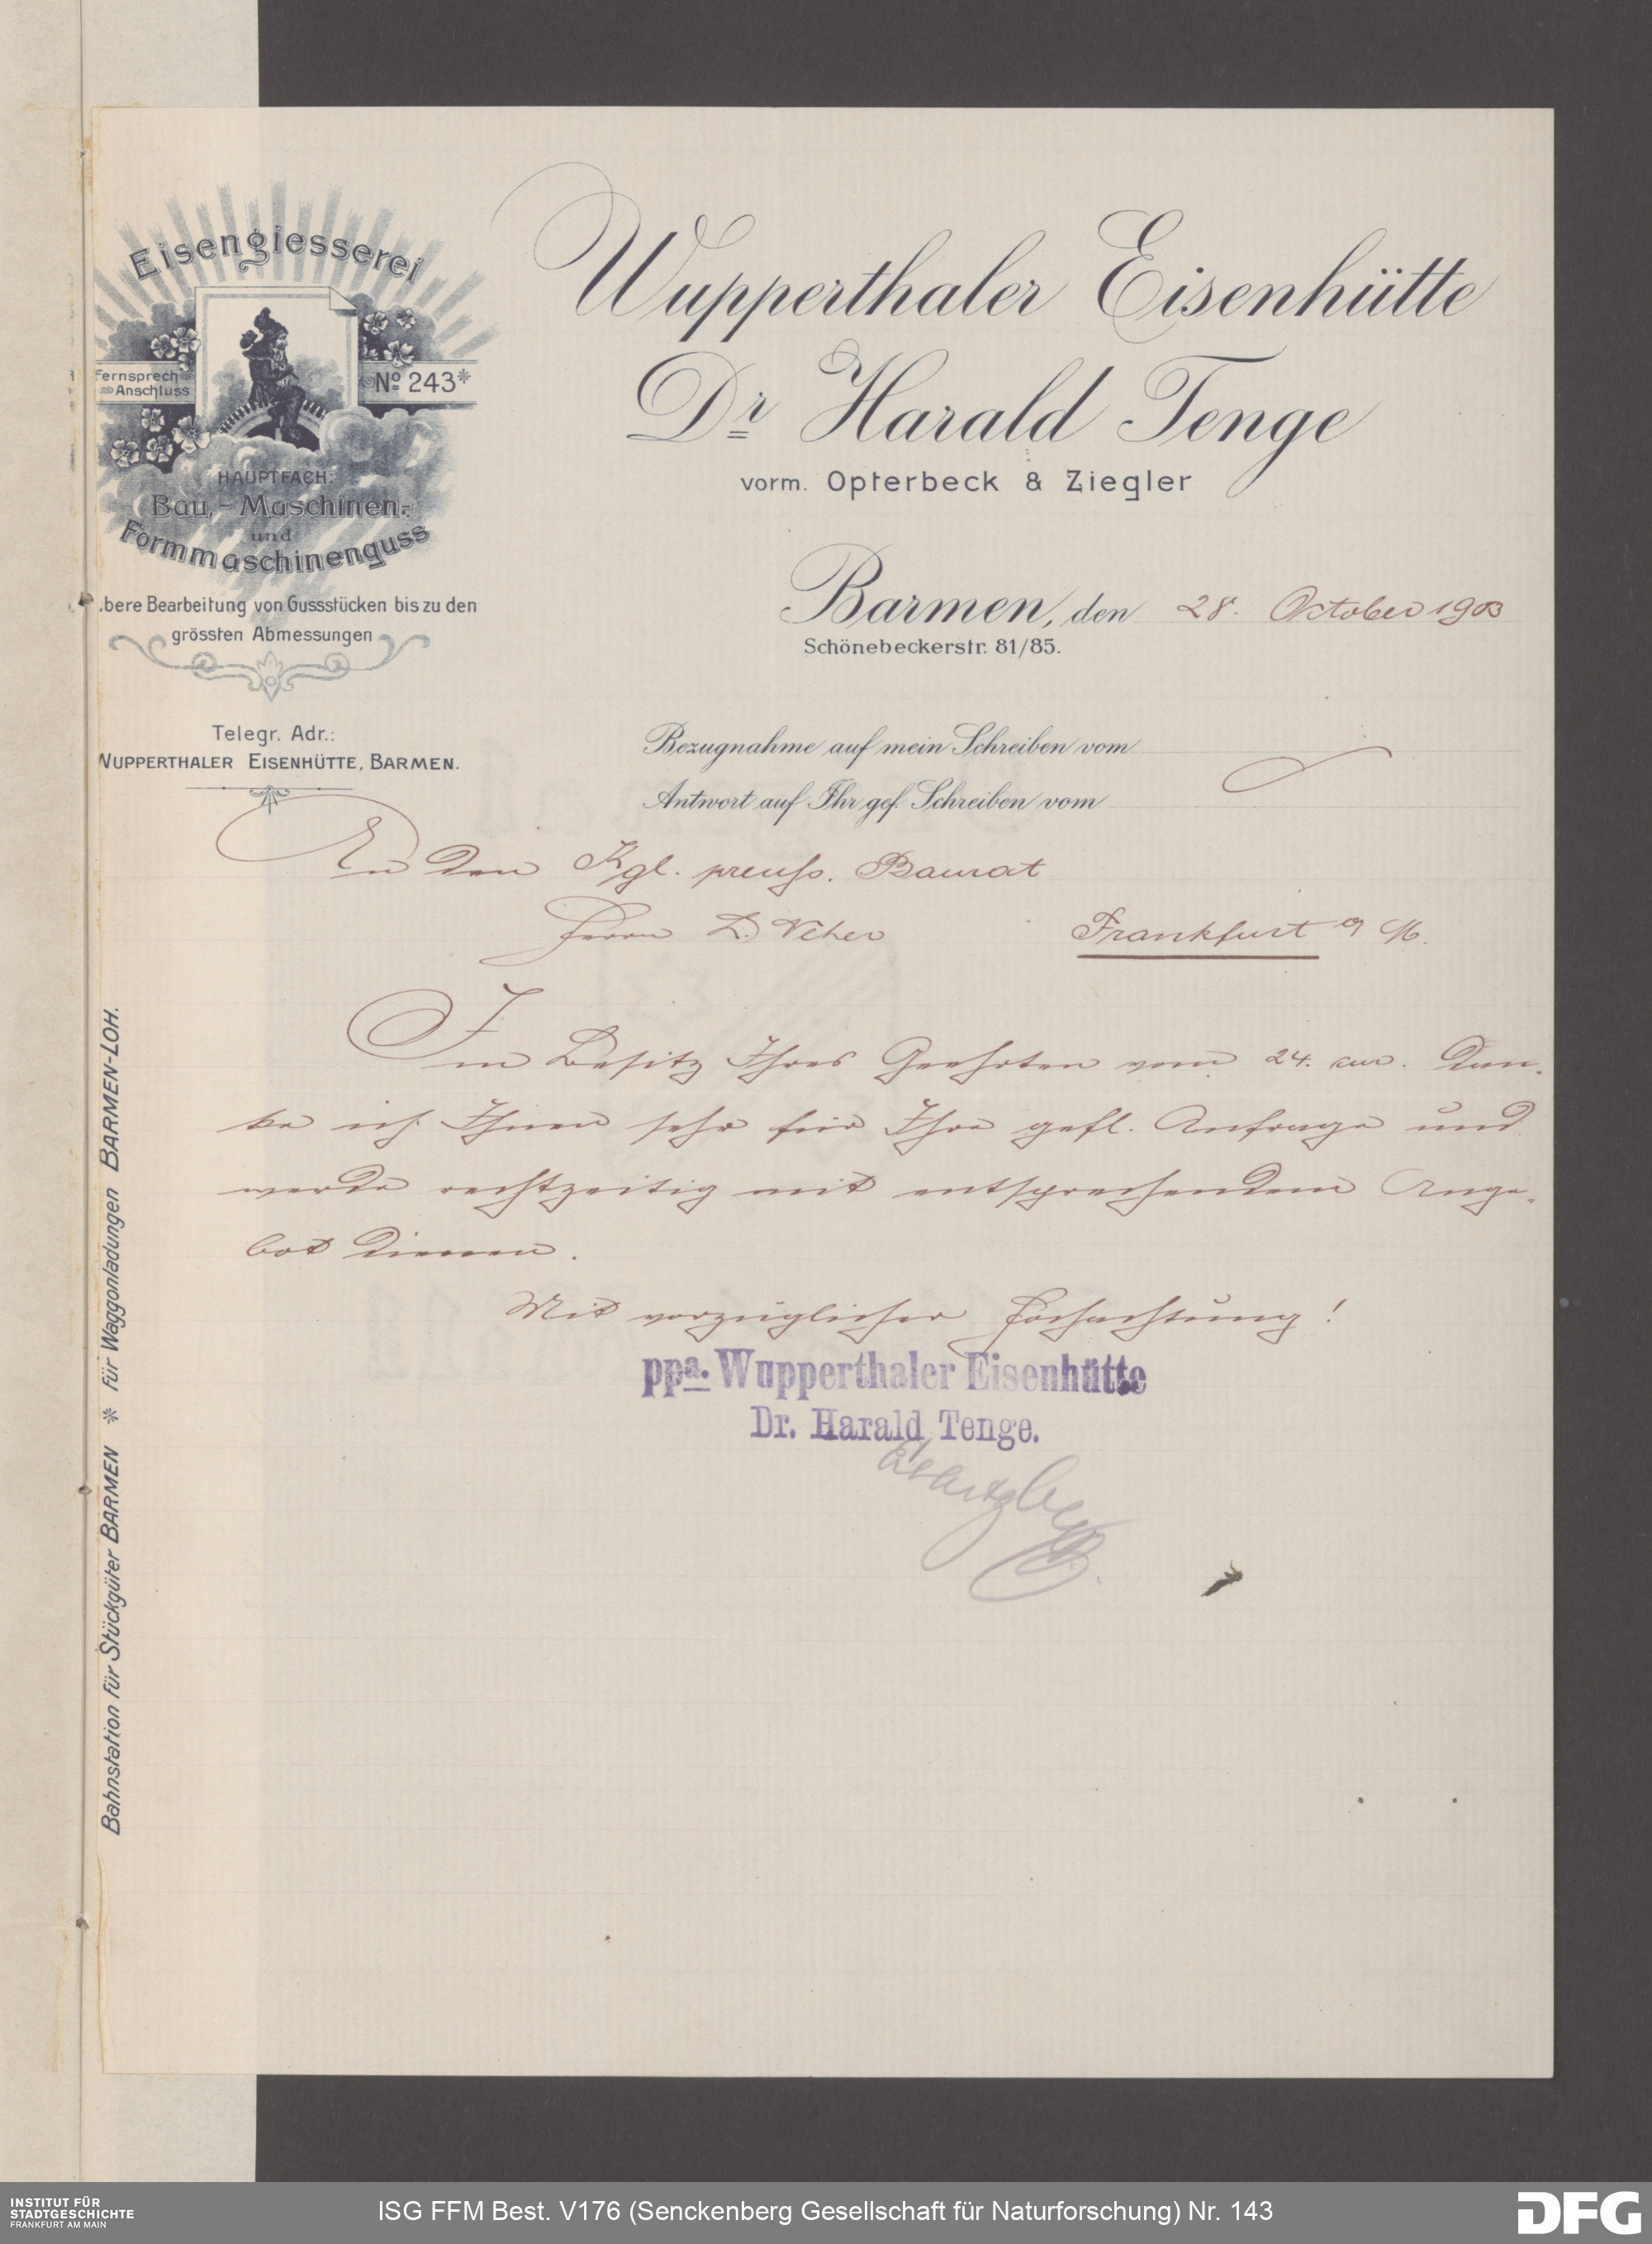 Eisengiesserei
Fernsprech
Anschluss
No 243*
HAUPTFACH:
Bau,- Maschinen-
und
Formmaschinenguss
bere Bearbeitung von Gussstücken bis zu den
grössten Abmessungen
Telegr. Adr.:
WUPPERTHALER EISENHÜTTE, BARMEN.
Bahnstation für Stückgüter BARMEN * für Waggonladungen BARMEN-LOH.
Wupperthaler Eisenhütte
Dr Harald Tenge
vorm. Opterbeck & Ziegler
Barmen, den 28. October 1903
Schönebeckerstr. 81/85.
Bezugnahme auf mein Schreiben vom
Antwort auf Ihr gef. Schreiben vom
An den Kgl. preuss. Baurat
Herrn L. Neher Frankfurt a M.
Im Besitz Ihres Geehrten vom 24. cur. dan-
ke ich Ihnen sehr für Ihre gefl. Anfrage und
werde rechtzeitig mit entsprechendem Ange-
bot dienen.
Mit vorzüglicher Hochachtung!
ppa. Wupperthaler Eisenhütte
Dr. Harald Tenge.
INSTITUT FÜR
STADTGESCHICHTE
FRANKFURT AM MAIN
ISG FFM Best. V176 (Senckenberg Gesellschaft für Naturforschung) Nr. 143
DFG